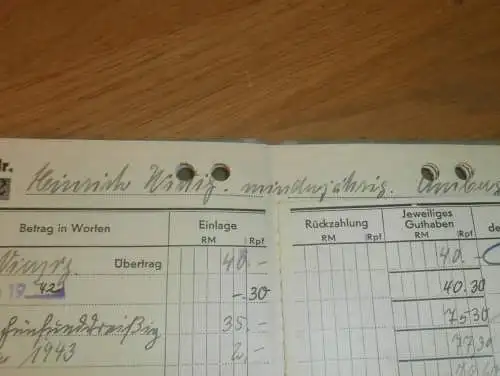 Nr.
Heinrich minderjährig. Amberg
Betrag in Worten Einlage RM Rpf. Rückzahlung RM Rpf. Jeweiliges Guthaben RM Rpf.
Vierzig Übertrag 40.- 40.-
19 42 -.30 40.30
Fünfunddreißig 35.- 75 30
1943 2.- 77 30